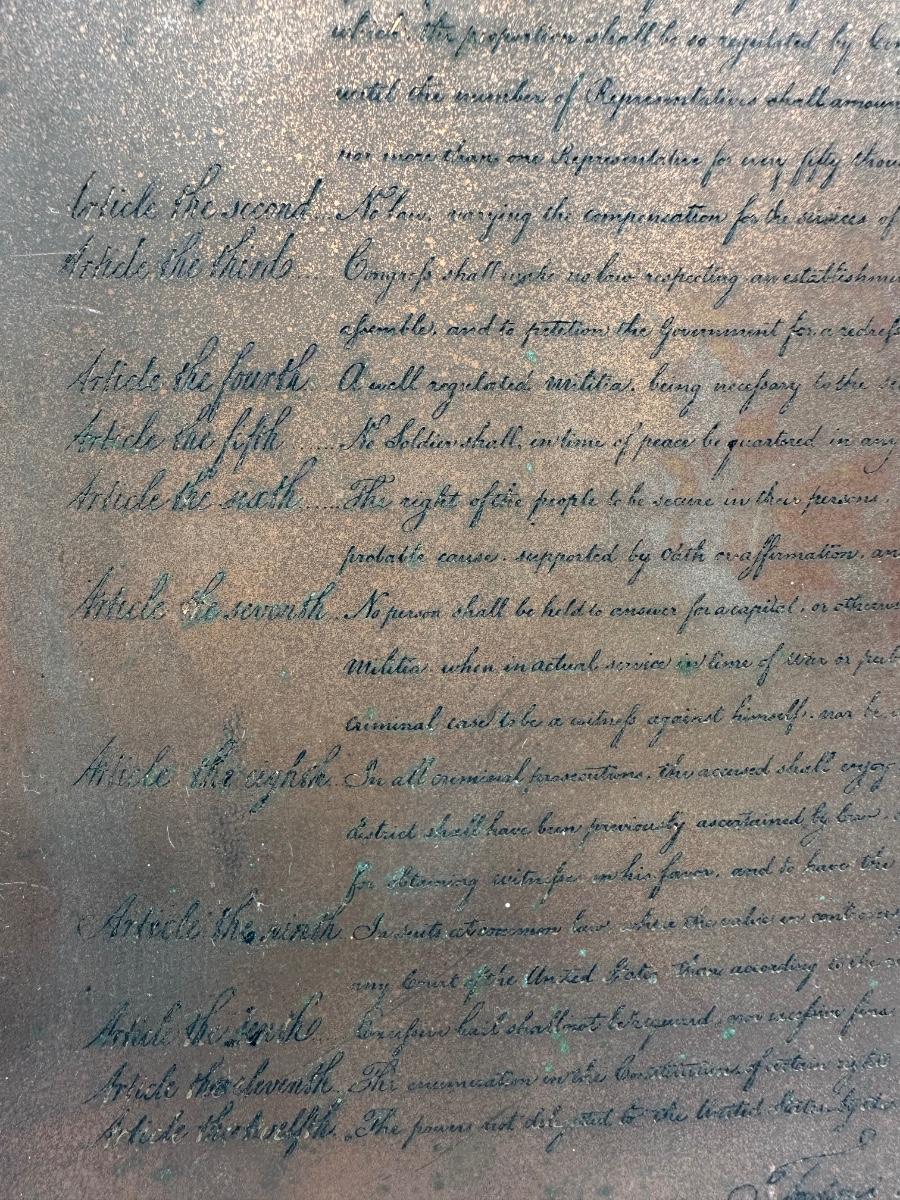 which, the proportion shall be so regulated by Con
until the number of Representatives shall amoun
nor more than one Representative for every fifty thou
Article the second... No law, varying the compensation for the services of
Article the third..... Congress shall make no law respecting an establishme
assemble, and to petition the Government for a redress
Article the fourth. A well regulated militia, being necessary to the se
Article the fifth ...... No Soldier shall, in time of peace be quartered in any
Article the sixth...... The right of the people to be secure in their persons,
probable cause, supported by Oath or affirmation, an
Article the seventh. No person shall be held to answer for a capital, or otherwi
Militia, when in actual service in time of War or pub
criminal case to be a witness against himself, nor be
Article the eighth. In all criminal prosecutions, the accused shall enjoy
district shall have been previously ascertained by law,
for obtaining witnesses in his favor, and to have the
Article the ninth. In suits at common law, where the value in controver
any Court of the United States, than according to the
Article the tenth... Excessive bail shall not be required, nor excessive fines
Article the eleventh. The enumeration in the Constitution, of certain rights
Article the twelfth. The powers not delegated to the United States by the